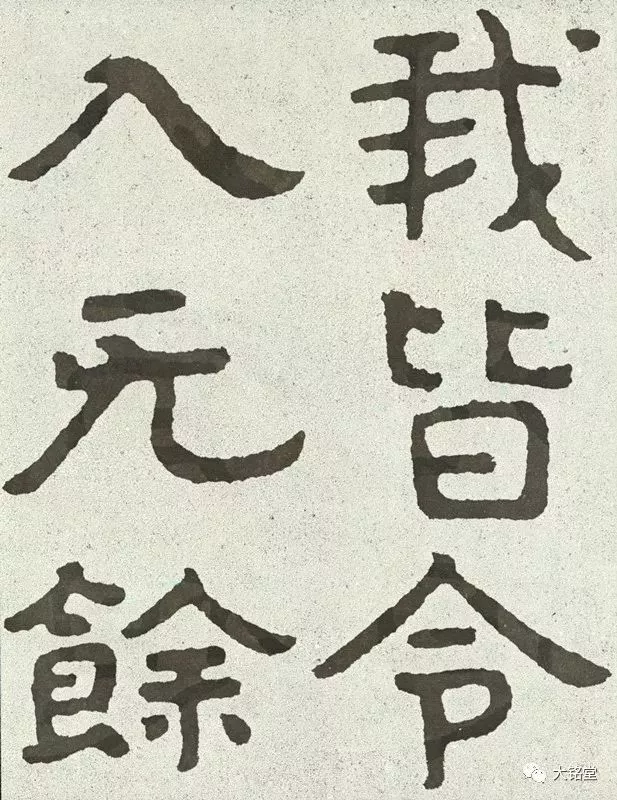 我皆令
入无餘
大铭堂